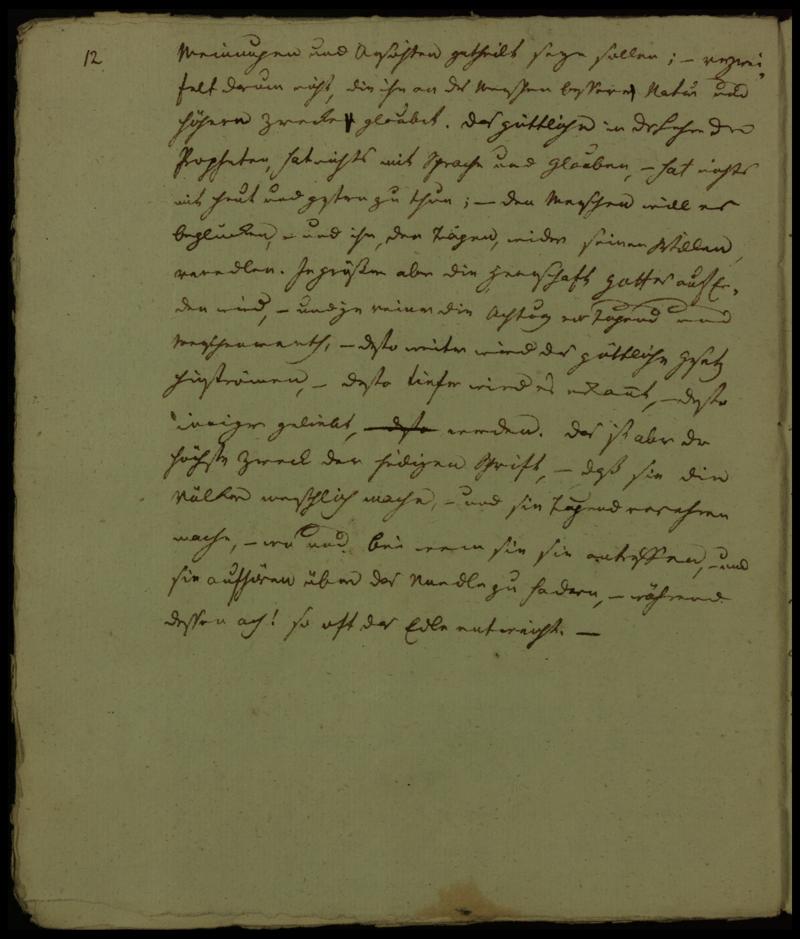 12
Meinungen und Ansichten getheilt seyn sollen; – verzwei-
felt darum nicht, die ihr an des Menschen bessere Natur und
höhern Zwecke glaubet. Das göttliche in der Lehre der
Propheten, hat nichts mit Sprache und Glauben, – hat nichts
mit heut und gestern zu thun; – den Menschen will es
beglücken, – und ihn, den Trägen, wider seinen Willen,
veredlen. Je größer aber die Herrschaft Gottes auf Er-
den wird, – und je reiner die Achtung vor Tugend und
Menschenwerth, – desto weiter wird das göttliche Gesetz
hinströmen, – desto tiefer wird es erkannt, – desto
inniger geliebt, – desto werden. Das ist aber der
höchste Zweck der heiligen Schrift, – daß sie die
Völker menschlich mache, – und sie Tugend verehren
mache, – wo und bei wem sie sie antreffen, – und
sie aufhören über das Unedle zu hadern, – während
dessen ach! so oft das Edle entweicht. –